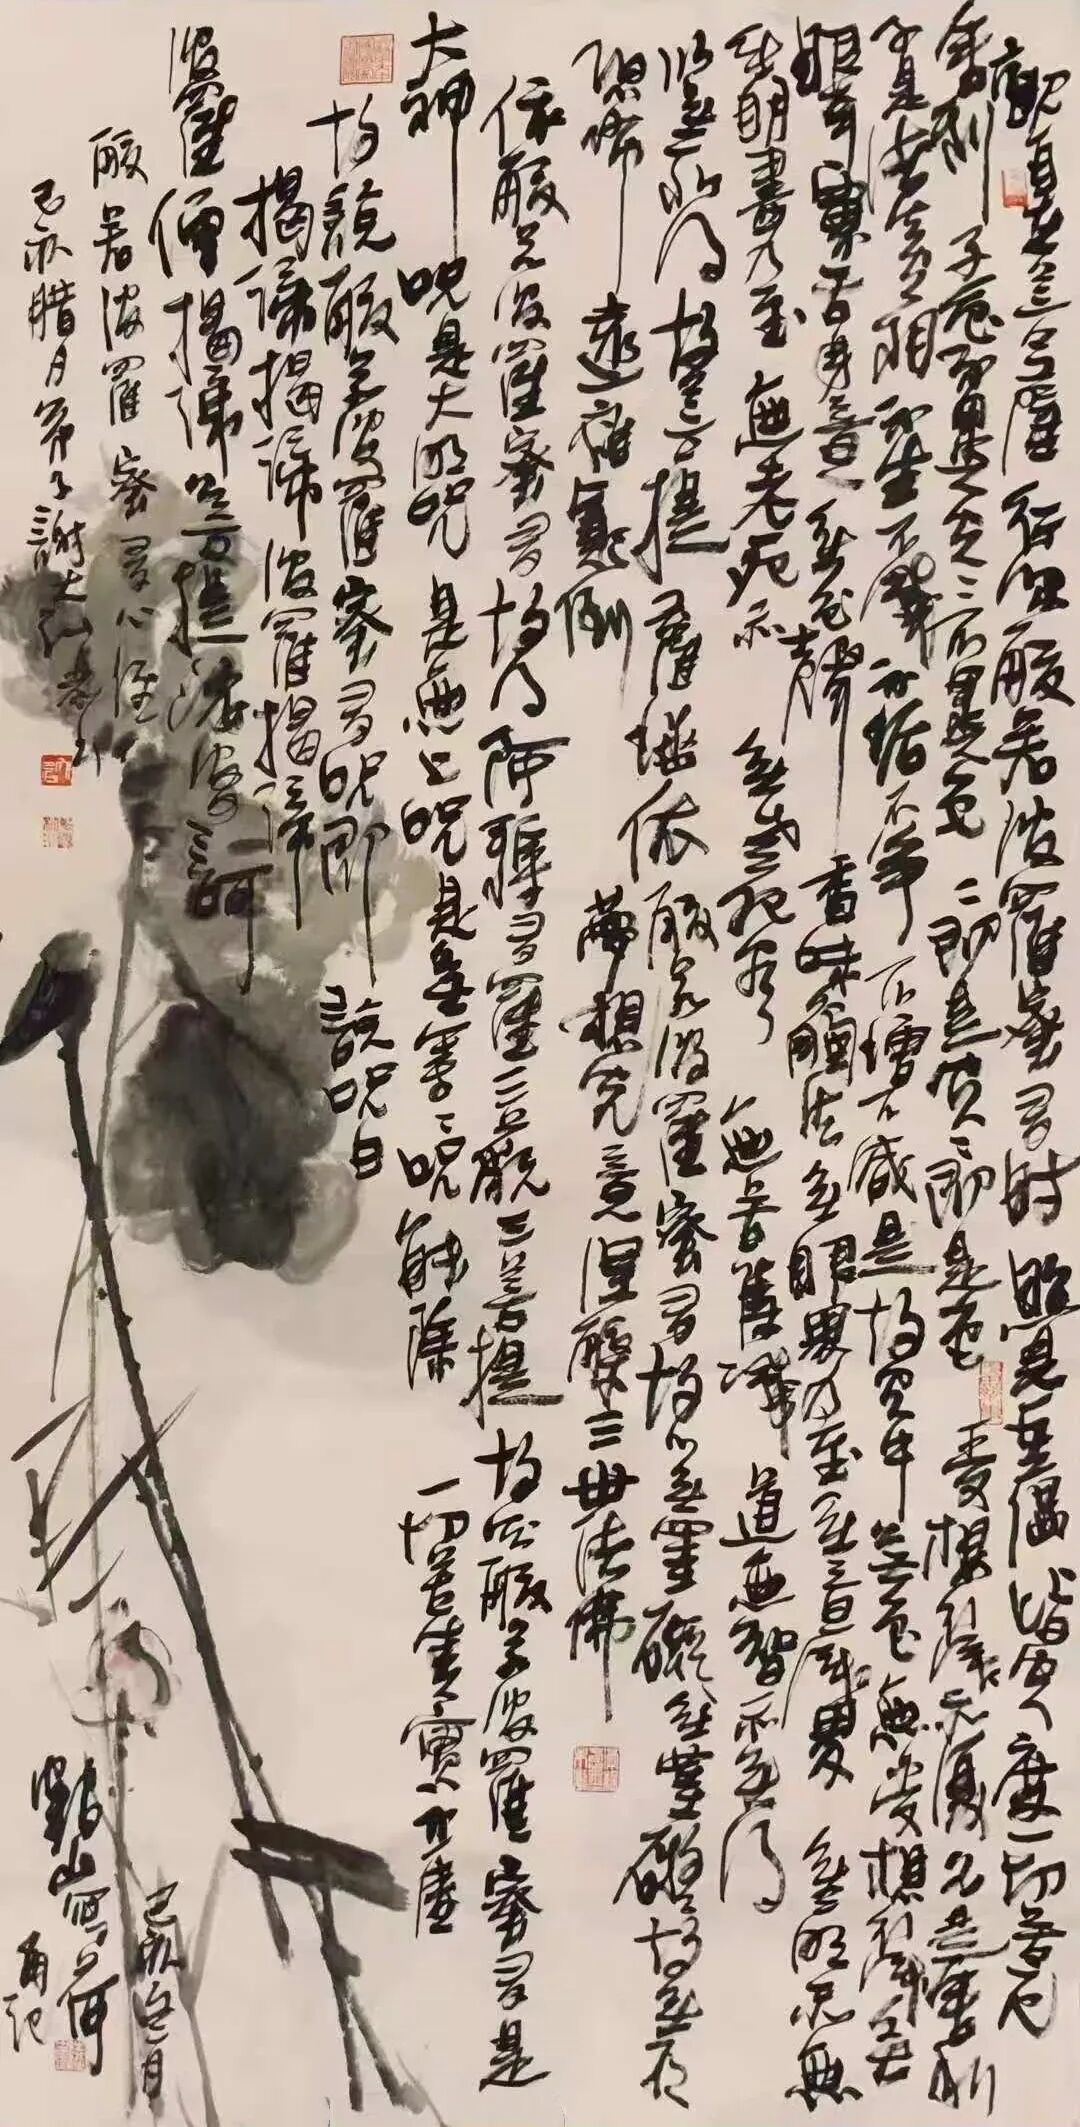 觀自在菩薩行深般若波羅蜜多時照見五蘊皆空度一切苦厄
舍利子色不異空々不異色々即是空々即是色受想行識亦復如是舍利
子是諸法空相不生不滅不垢不淨不增不減是故空中無色無受想行識無
眼耳鼻舌身意無色聲香味觸法無眼界乃至無意識界無無明亦無
無明盡乃至無老死亦無老死盡無苦集滅道無智亦無得
以無所得故菩提薩埵依般若波羅蜜多故心無罣礙無罣礙故無有
恐怖遠離顛倒夢想究竟涅槃三世諸佛
依般若波羅蜜多故得阿耨多羅三藐三菩提故知般若波羅蜜多是
大神咒是大明咒是無上咒是無等々咒能除一切苦真實不虛
故說般若波羅蜜多咒即說咒曰
揭諦揭諦波羅揭諦
波羅僧揭諦菩提薩婆訶
般若波羅蜜多心經
己亥臘月弟子謝大
己亥冬月
山寫荷